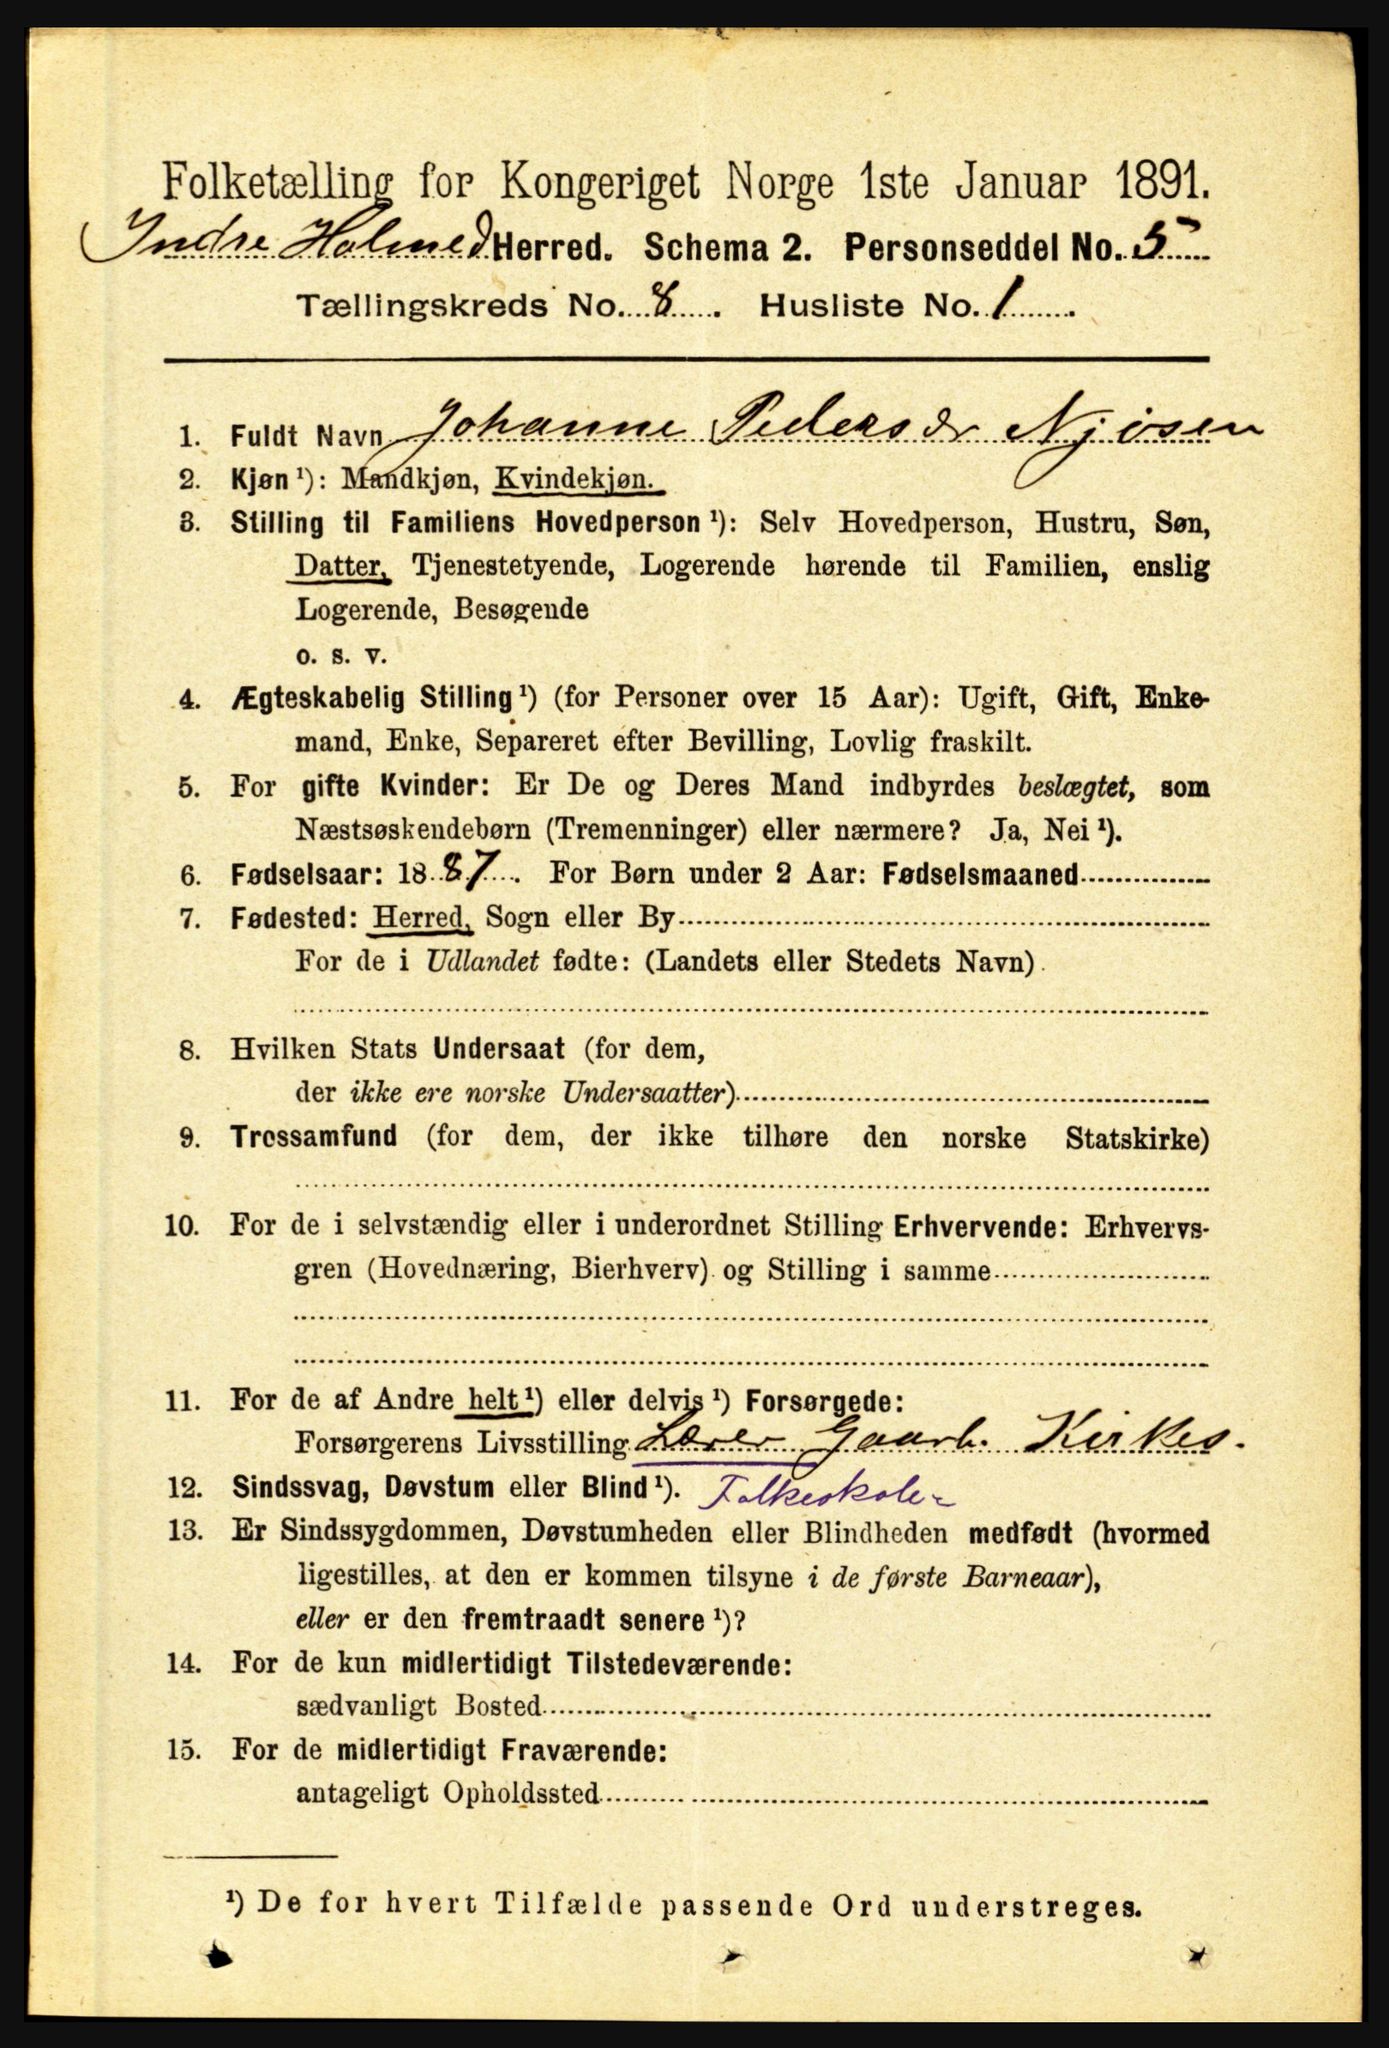 Folketælling for Kongeriget Norge 1ste Januar 1891.
Indre Holmed Herred. Schema 2. Personseddel No. 5
Tællingskreds No. 8. Husliste No. 1.
1. Fuldt Navn Johanne Pedersdr Njøsen
2. Kjøn ¹): Mandkjøn, Kvindekjøn.
3. Stilling til Familiens Hovedperson ¹): Selv Hovedperson, Hustru, Søn,
Datter, Tjenestetyende, Logerende hørende til Familien, enslig
Logerende, Besøgende
o. s. v.
4. Ægteskabelig Stilling ¹) (for Personer over 15 Aar): Ugift, Gift, Enke-
mand, Enke, Separeret efter Bevilling, Lovlig fraskilt.
5. For gifte Kvinder: Er De og Deres Mand indbyrdes beslægtet, som
Næstsøskendebørn (Tremenninger) eller nærmere? Ja, Nei ¹).
6. Fødselsaar: 1887. For Børn under 2 Aar: Fødselsmaaned
7. Fødested: Herred, Sogn eller By
For de i Udlandet fødte: (Landets eller Stedets Navn)
8. Hvilken Stats Undersaat (for dem,
der ikke ere norske Undersaatter)
9. Trossamfund (for dem, der ikke tilhøre den norske Statskirke)
10. For de i selvstændig eller i underordnet Stilling Erhvervende: Erhvervs-
gren (Hovednæring, Bierhverv) og Stilling i samme
11. For de af Andre helt ¹) eller delvis ¹) Forsørgede:
Forsørgerens Livsstilling Lærer Gaarb. Kirkes.
12. Sindssvag, Døvstum eller Blind ¹). Folkeskole
13. Er Sindssygdommen, Døvstumheden eller Blindheden medfødt (hvormed
ligestilles, at den er kommen tilsyne i de første Barneaar),
eller er den fremtraadt senere ¹)?
14. For de kun midlertidigt Tilstedeværende:
sædvanligt Bosted
15. For de midlertidigt Fraværende:
antageligt Opholdssted
¹) De for hvert Tilfælde passende Ord understreges.